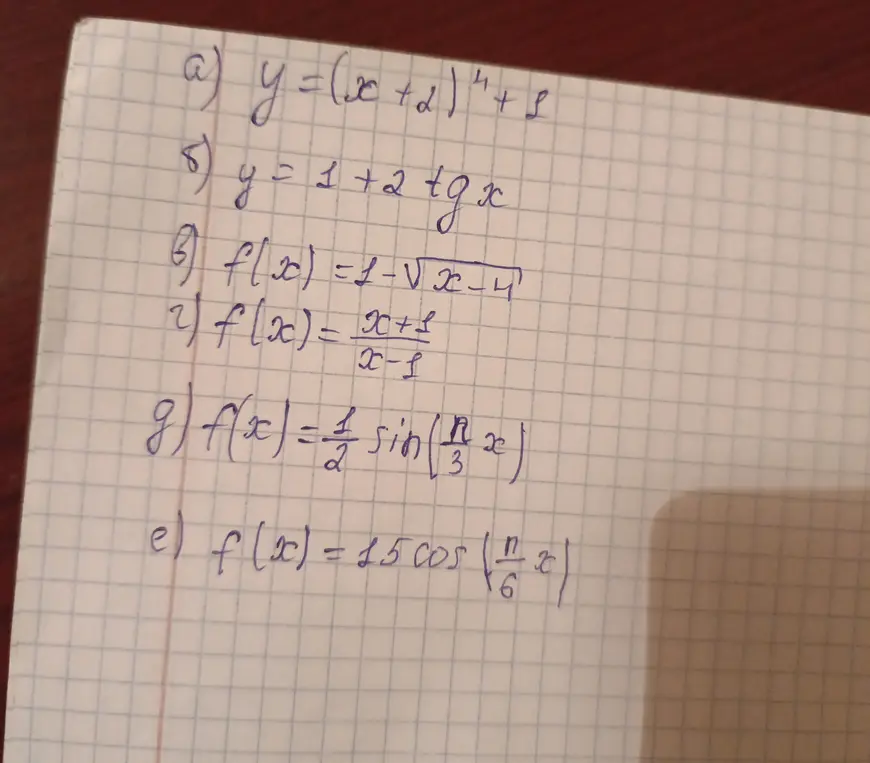 а) y = (x + 2)⁴ + 1
б) y = 1 + 2 tg x
в) f(x) = 1 - √(x - 4)
г) f(x) = (x + 1)/(x - 1)
д) f(x) = 1/2 sin(π/3 x)
е) f(x) = 15 cos(π/6 x)